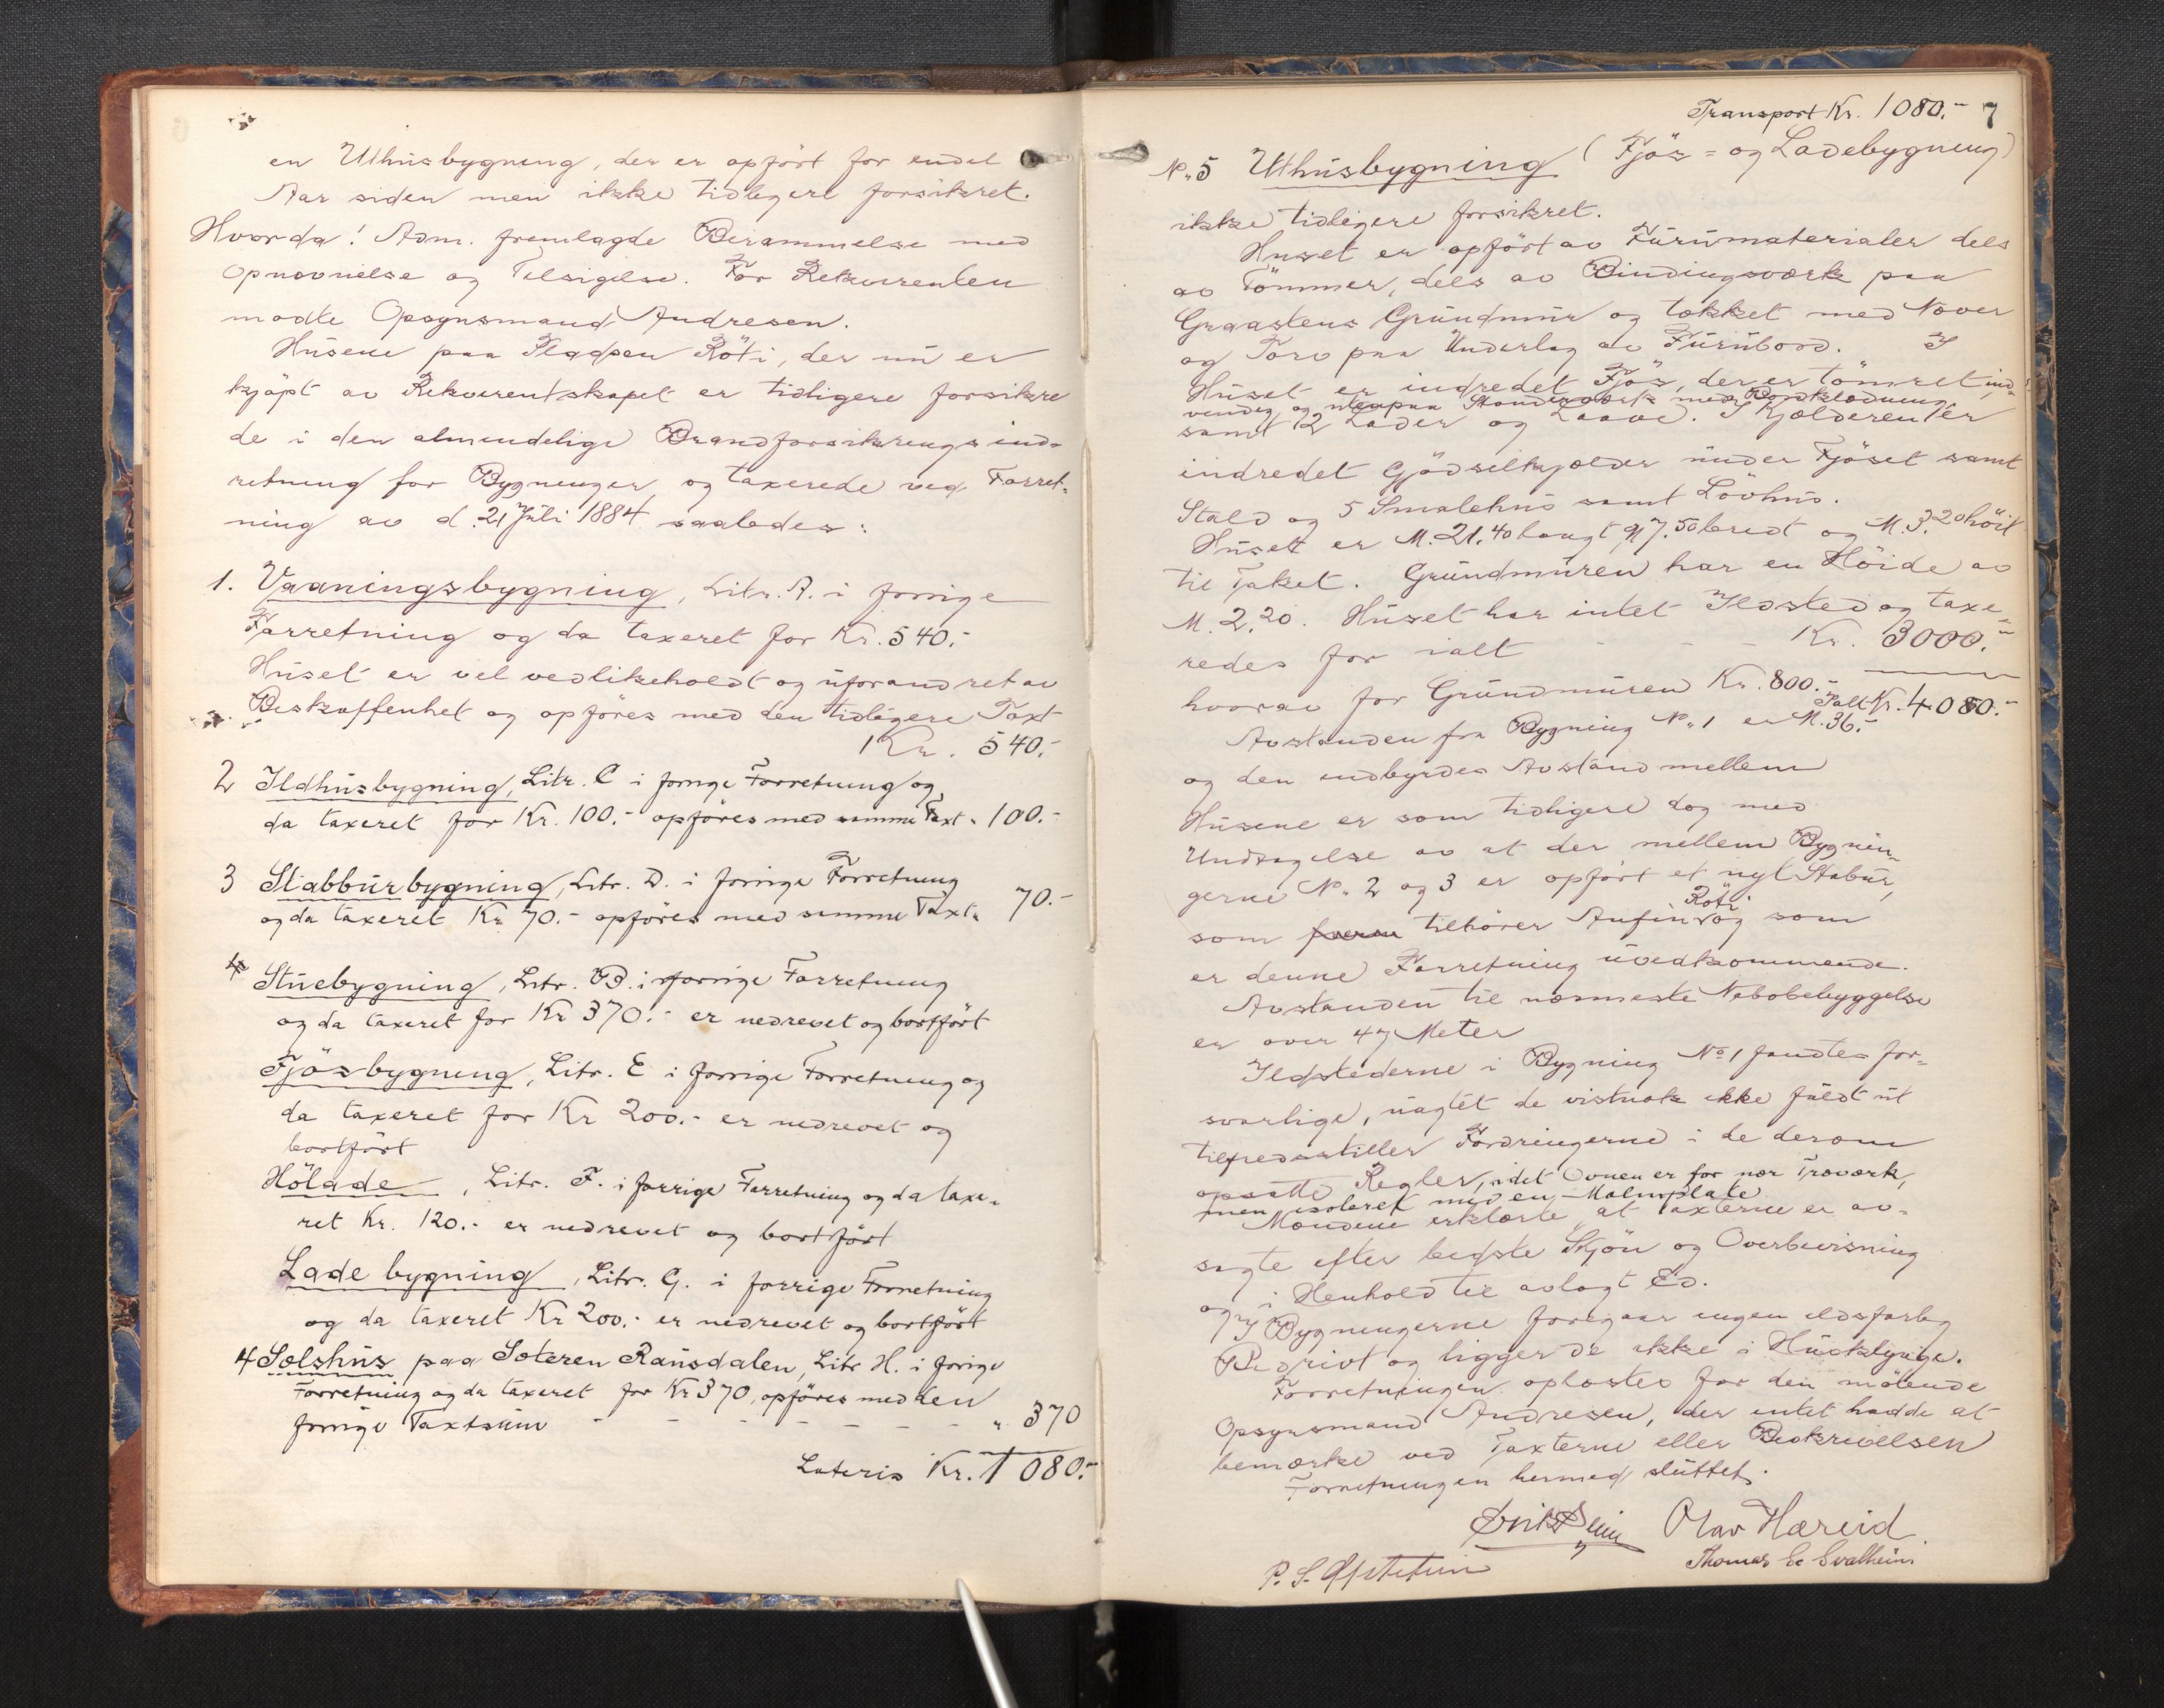 en Uthusbygning, der er opført for endel
Aar siden men ikke tidligere forsikret.
Hvorda! Adm. fremlagde Berammelse med
Opnævnelse og Tilsigelse. For Rekvirenten
mødte Opsynsmand Andresen.
Husene paa Pladsen Röti, der nu er
kjøpt av Rekvirentskapet er tidligere forsikre
de i den almindelige Brandforsikrings ind-
retning for Bygninger og taxerede ved Forret-
ning av d. 21 Juli 1884 saaledes:
1. Vaaningsbygning, Litr. A. i forrige
Forretning og da taxeret for Kr. 540.-
Huset er vel vedlikeholdt og uforandret av
Beskaffenhet og opføres med den tidligere Taxt
Kr. 540.-
2 Ildhusbygning, Litr. C i forrige Forretning og
da taxeret for Kr. 100.- opføres med samme Taxt " 100.-
3 Stabburbygning, Litr. D. i forrige Forretning
og da taxeret Kr 70.- opføres med samme Taxt " 70.-
Stuebygning, Litr. B. i forrige Forretning
og da taxeret for Kr 370.- er nedrevet og bortført
Fjösbygning, Litr. E i forrige Forretning og
da taxeret for Kr 200.- er nedrevet og
bortført
Hölade, Litr. F. i forrige Forretning og da taxe-
ret Kr. 120.- er nedrevet og bortført
Ladebygning, Litr. G. i forrige Forretning
og da taxeret Kr 200.- er nedrevet og bortført
4 Sælshus paa Sæteren Rausdalen, Litr H. i forrige
Forretning og da taxeret for Kr 370, opføres med den
forrige Taxtsum - - - - - - " 370
Lateris Kr. 1080.-
Transport Kr. 1080.- 7
No 5 Uthusbygning (Fjös- og Ladebygning)
ikke tidligere forsikret.
Huset er opført av Furumaterialer dels
av Tömmer, dels av Bindingsværk paa
Graastens Grundmur og tækket med Næver
og Torv paa Underlag av Furubord. I
Huset er indredet Fjös, der er tömret, ind-
vendig og utenpaa Standerværk med Bordklædning,
samt 2 Lader og Laave. I Kjælderen er
indredet Gjödselkjælder under Fjöset samt
Stald og 5 Smalehus samt Lövhus.
Huset er M. 21.40 langt, 7.50 bredt og M. 3.20 höit
til Taket. Grundmuren har en Höide av
M. 2.20. Huset har intet Ildsted og taxe-
redes for ialt - - - Kr. 3000.-
hvorav for Grundmuren Kr. 800.-
Ialt Kr. 4080.-
Avstanden fra Bygning No 1 er M. 36.-
og den indbyrdes Avstand mellem
Husene er som tidligere dog med
Undtagelse av at der mellem Bygnin-
gerne No 2 og 3 er opført et nyt Stabur,
som tilhører Anfin Röti og som
er denne Forretning uvedkommende.
Avstanden til nærmeste Nabobebyggelse
er over 47 Meter
Ildstederne i Bygning No 1 fandtes for-
svarlige, uagtet de vistnok ikke fuldt ut
tilfredsstiller Fordringerne i de derom
opsatte Regler, idet Ovnen er for nær Træværk,
men isoleret med en Malmplate.
Mændene erklærte, at Taxterne er av-
sagte efter bedste Skjön og Overbevisning
og i Henhold til avlagt Ed.
I Bygningerne foregaar ingen ildsfarlig
Bedrivt og ligger de ikke i Husklynge.
Forretningen oplæstes for den mötende
Opsynsmand Andresen, der intet hadde at
bemærke ved Taxterne eller Beskrivelsen
Forretningen hermed sluttet.
Olav Hæreid
P. S. Opstetun
Thomas E. Svalheim